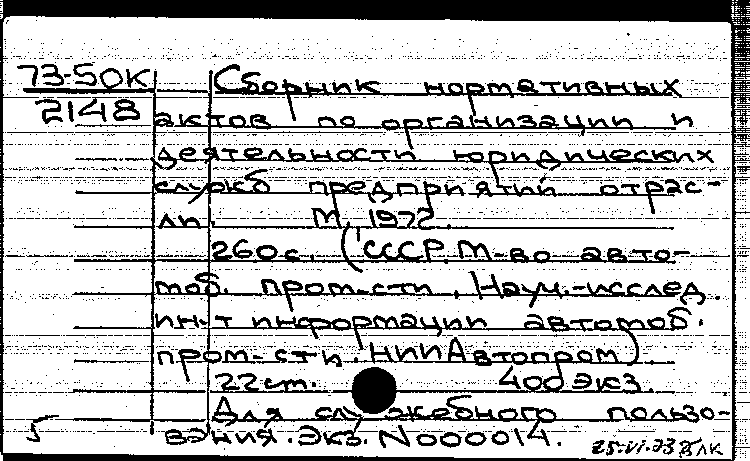 73-50К Сборник нормативных
2148 актов по организации и
деятельности юридических
служб предприятий отрас-
ли. М., 1972.
260с. (СССР. М-во авто-
моб. пром-сти. Науч.-исслед.
ин-т информации автомоб.
пром-сти. НИИАвтопром).
22см. 400 экз.
Для служебного пользо-
5 вания. Экз. N000014. 25-VI-73